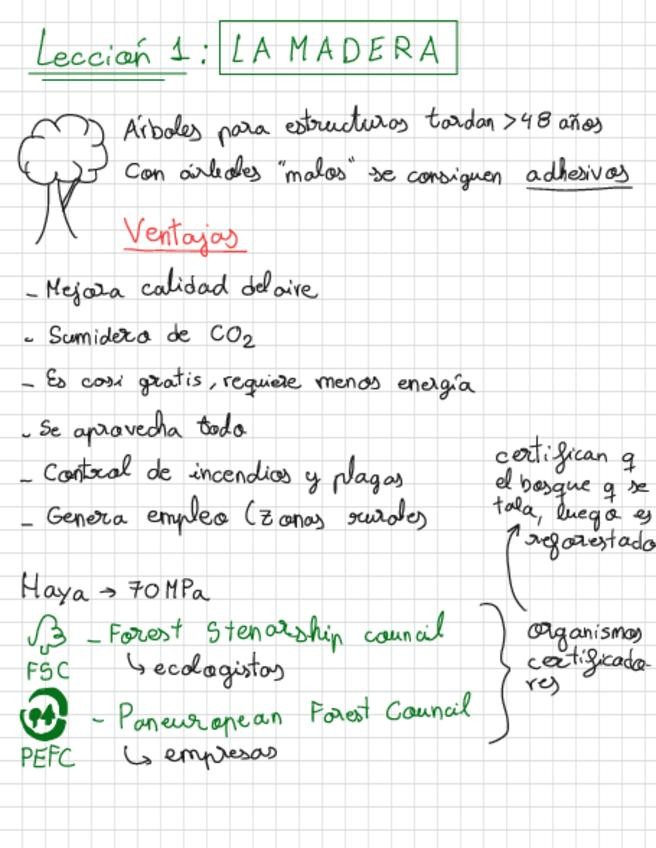 Lección 1: LA MADERA
Árboles para estructuras tardan >48 años
Con árboles "malos" se consiguen adhesivos
Ventajas
- Mejora calidad del aire
- Sumidero de CO2
- Es casi gratis, requiere menos energía
- Se aprovecha todo
- Control de incendios y plagas
- Genera empleo (zonas rurales
certifican q
el bosque q se
tala, luego es
reforestado
Haya → 70 MPa
- Forest Stenarship council
FSC
↳ ecologistas
- Paneuropean Forest Council
PEFC
↳ empresas
organismos
certificado-
res